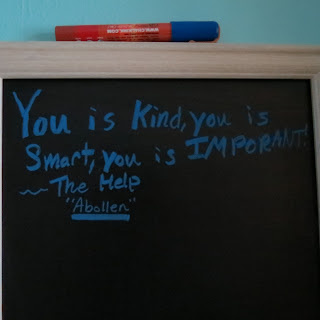 You is Kind, you is
Smart, you is IMPORANT!
~~ The Help
"Abollen"